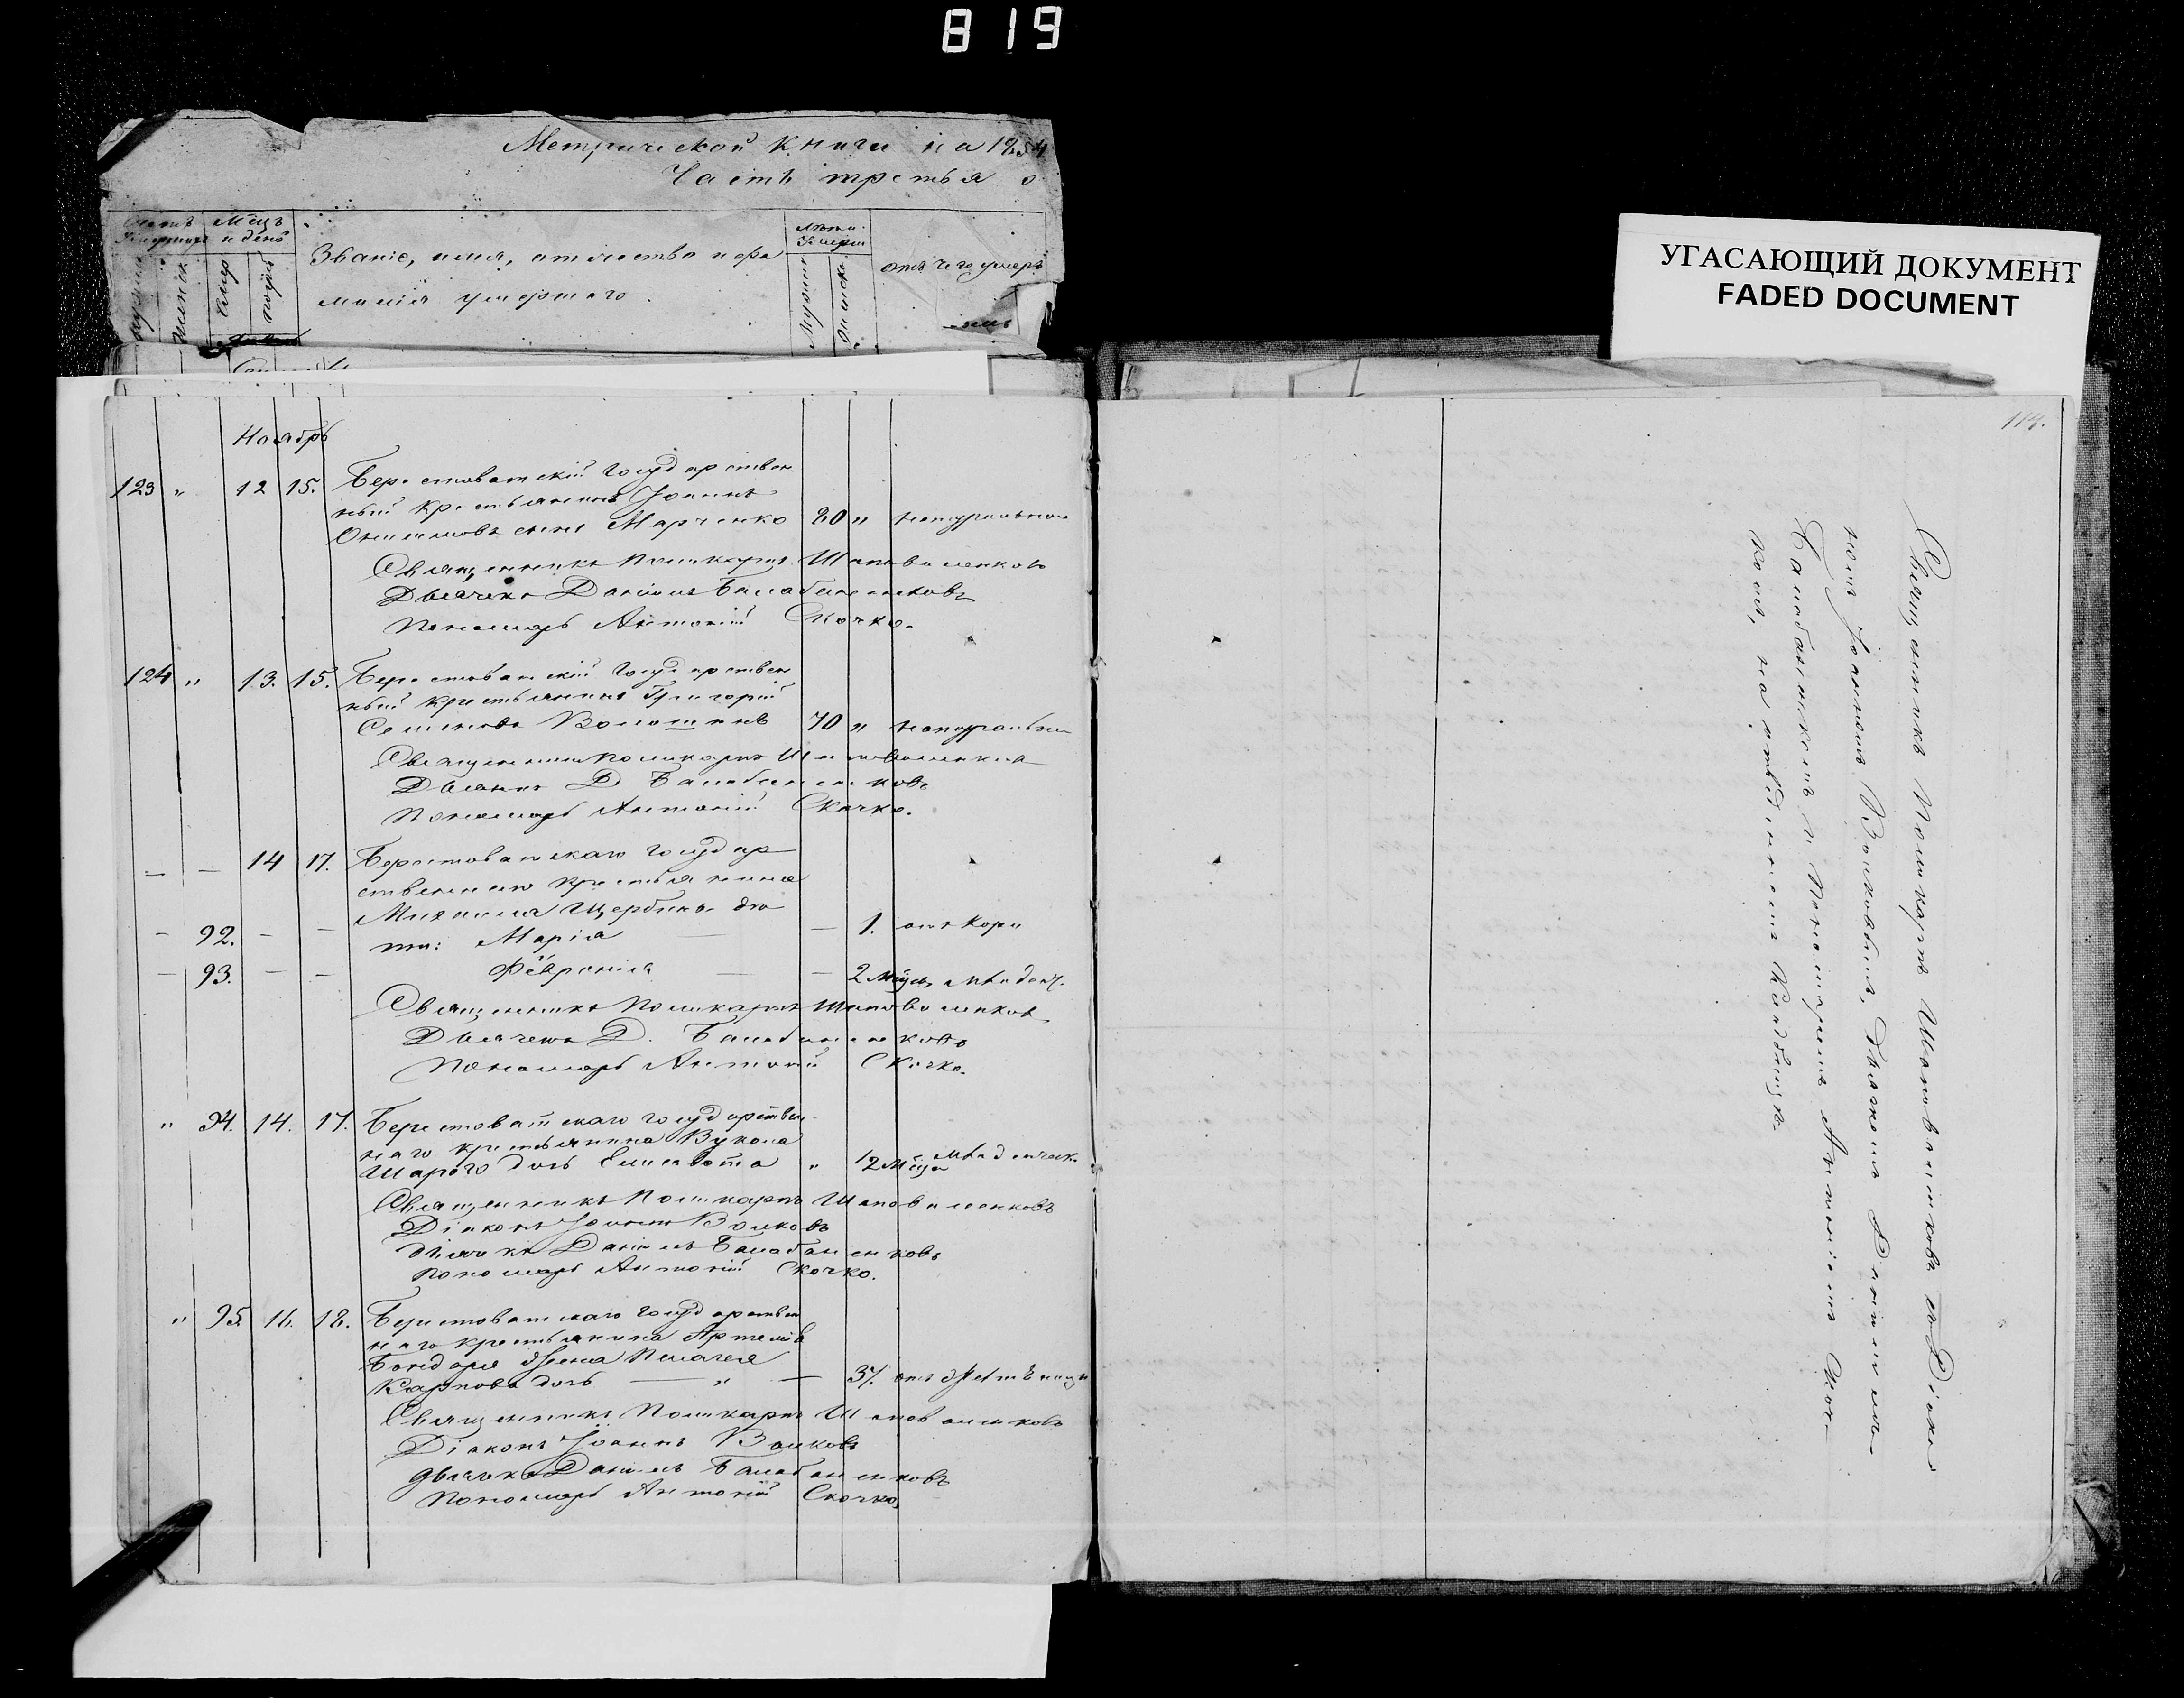 819
Метрической книги на 1854
Часть третья о
Счетъ умершихъ
Мѣцъ и день
Званіе, имя, отчество и фа
милія умершаго.
Лѣта умерш
отъ чего умеръ
УГАСАЮЩИЙ ДОКУМЕНТ
FADED DOCUMENT
Ноябрь
123 " 12 15. Берестоватскій государствен
ный крестьянинъ Іоаннъ
сынъ Марченко 80 " натуральною
Священникъ Поликарпъ Шаповаленковъ
Дьячекъ Даніилъ Балабаненковъ
Пономарь Антоній Скочко.
124 " 13. 15. Берестоватскій государствен
ный крестьянинъ Григорій
Семеновъ Волошинъ 70 " натуральною
Священникъ Поликарпъ Шаповаленковъ
Дьячекъ Д Балабаненковъ
Пономарь Антоній Скочко.
— — 14 17. Берестоватскаго государ
ственнаго крестьянина
Михаила Щербины дѣ
— 92. — — ти: Марія — — 1. отъ кори
— 93. — — Февронія — — 2 мѣсц. младенч.
Священникъ Поликарпъ Шаповаленковъ
Дьячекъ Д. Балабаненковъ
Пономарь Антоній Скочко.
" 94. 14. 17. Берестоватскаго государствен
наго крестьянина Вукола
Шараго дочь Елисавета " 2 мѣсца младенческ.
Священникъ Поликарпъ Шаповаленковъ
Діаконъ Іоаннъ Волковъ
дьячекъ Даніилъ Балабаненковъ
пономарь Антоній Скочко.
" 95. 16. 18. Берестоватскаго государствен
наго крестьянина Артемія
Бондаря жена Пелагея
Карпова дочь — " — 37. отъ
Священникъ Поликарпъ Шаповаленковъ
Діаконъ Іоаннъ Волковъ
дьячекъ Даніилъ Балабаненковъ
Пономарь Антоній Скочко
114.
Священникъ Поликарпъ Шаповаленковъ съ Діако-
номъ Іоанномъ Волковымъ, Дьячкомъ Данииломъ
Балабаненкомъ и Пономаремъ Антоніемъ Скоч-
комъ, на кладбищѣ.